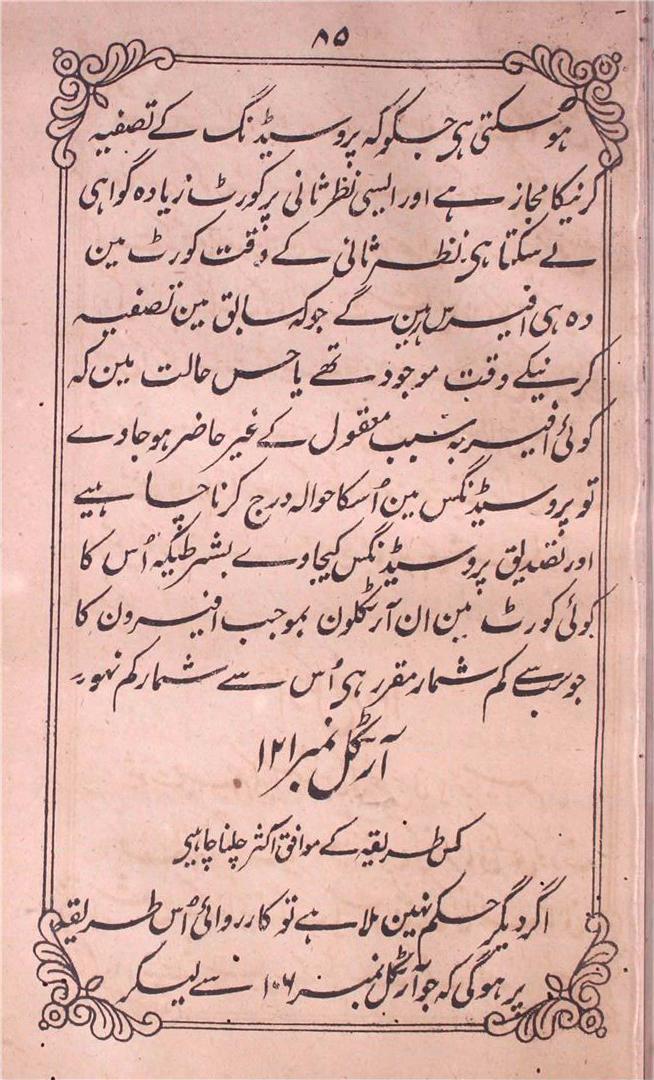 ۸۵
ہوسکتی ہی جسکو کہ پروسیڈنگ کے تصفیہ
کرنیکا مجاز ہے اور ایسی نظر ثانی پر کورٹ زیادہ گواہی
لے سکتا ہی نظر ثانی کے وقت کورٹ مین
وہ ہی افیسرس ہین گے جو کہ سابق مین تصفیہ
کرنیکے وقت موجود تھے یا جس حالت مین کہ
کوئی افیسر بہ سبب معقول کے غیر حاضر ہو جاوے
تو پروسیڈنگس مین اُسکا حوالہ درج کرنا چاہیے
اور تصدیق پروسیڈنگس کیجاوے بشرطیکہ اُس کا
کوئی کورٹ مین ان آرٹکلون بموجب افیسرون کا
جو سب سے کم شمار مقرر ہی اُس سے شمار کم نہوے
آرٹکل نمبر ۱۲۱
کس طریقہ کے موافق اکثر چلنا چاہیے
اگر دیگر حکم نہین ملا ہے تو کارروائی اُس طریقہ
پر ہوگی کہ جو آرٹکل نمبر ۱۰۶ سے لیکر